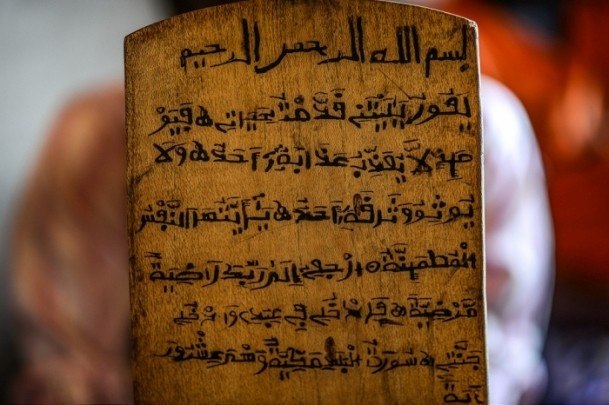 بسم الله الرحمن الرحيم
يقول يليتني قدمت لحياتي ه فيو
مئذ لا يعذب عذابه أحد ه ولا
يوثق وثقه أحد ه يأيتها النفس
المطمئنة ه ارجعي إلى ربك راضية
مرضية ه فادخلي في عبدي وادخلي
جنتي ه سورة البلد مكية وهي عشرون
اية